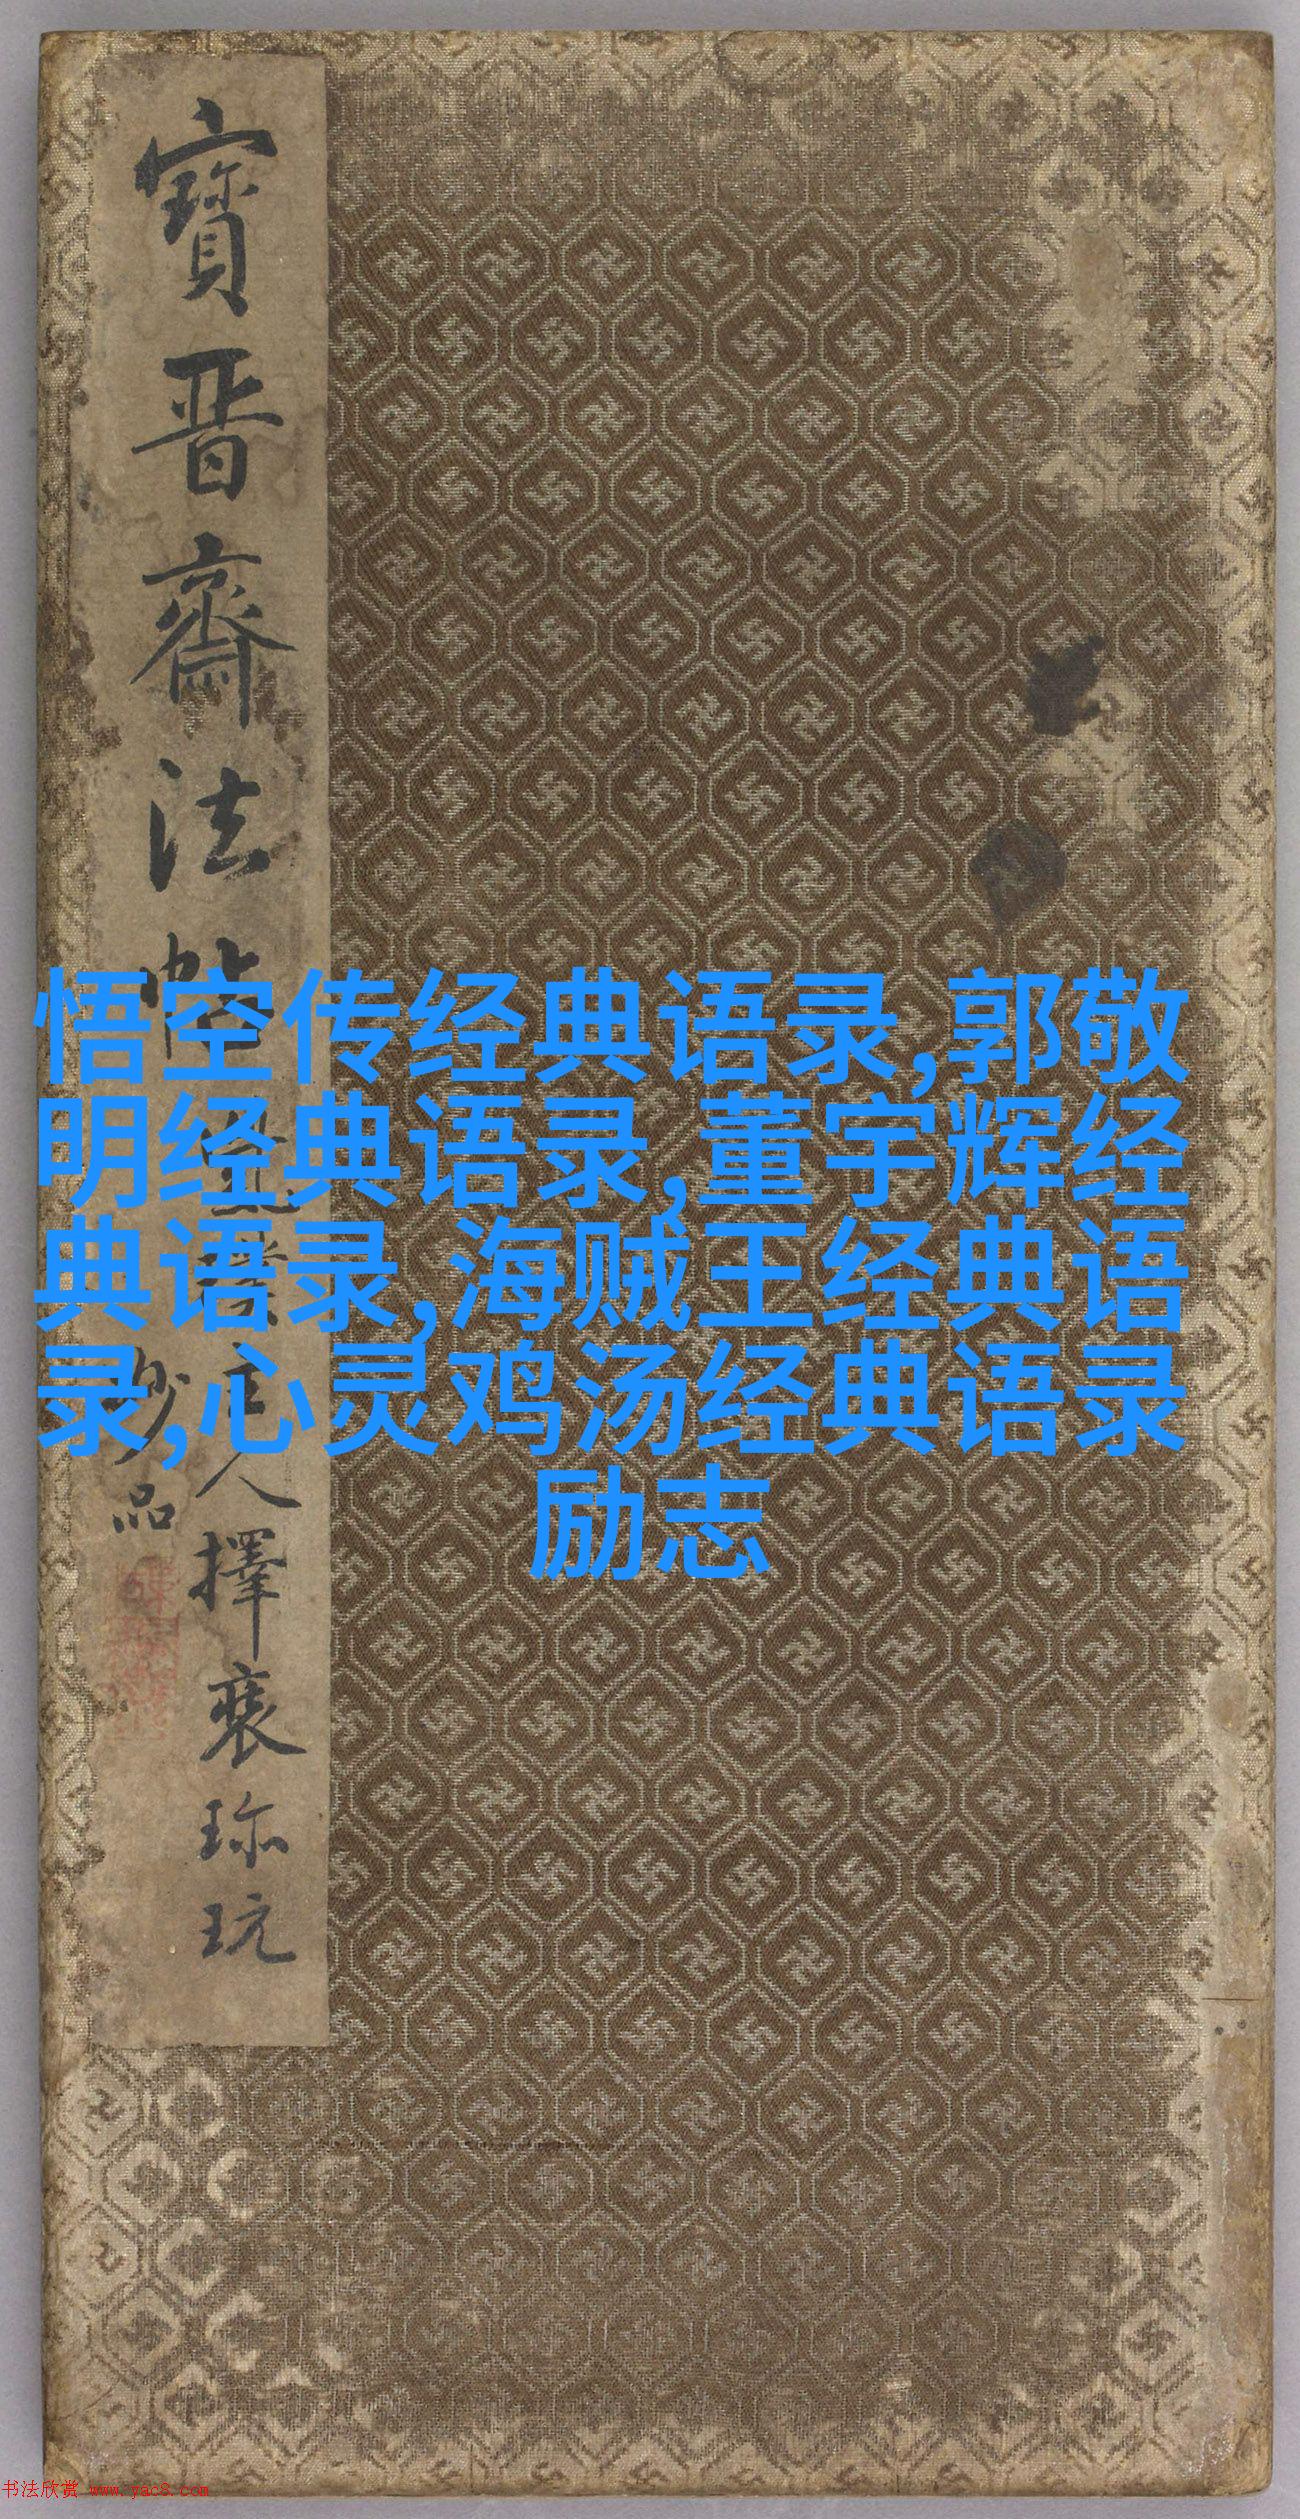 寶晋齋法帖
人擇裒珎玩
妙品
悟空传经典语录,郭敬
明经典语录,董宇辉经
典语录,海贼王经典语
录,心灵鸡汤经典语录
励志
书法欣赏 www.yac8.com